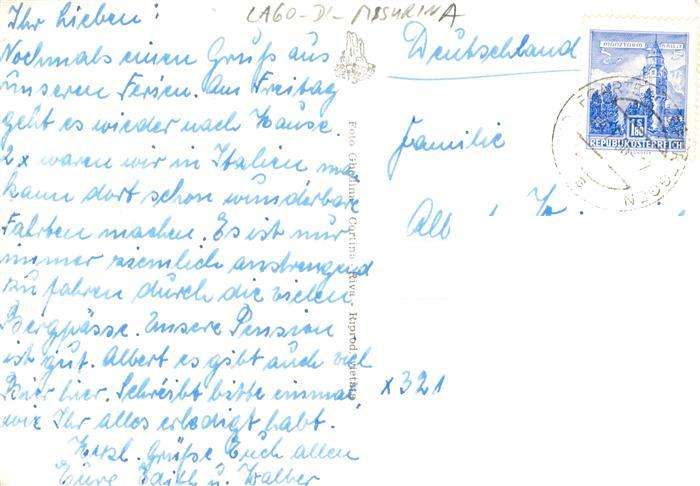 LAGO-DI-MISURINA
Ihr Lieben!
Nochmals einen Gruß aus
unseren Ferien. Am Freitag
geht es wieder nach Hause.
2 x waren wir in Italien ma
kann dort schon wunderbare
Fahrten machen. Es ist nur
immer ziemlich anstrengend
zu fahren durch die vielen
Bergpässe. Unsere Pension
ist gut. Albert es gibt auch viel
Bier hier. Schreibt bitte einmal,
wie Ihr alles erledigt habt.
Herzl. Grüße Euch allen
Eure Edith u. Walber
Foto Cortina Riva - Riprod. vietata
Deutschland
Familie
Alb
x 321
REPUBLIK ÖSTERREICH